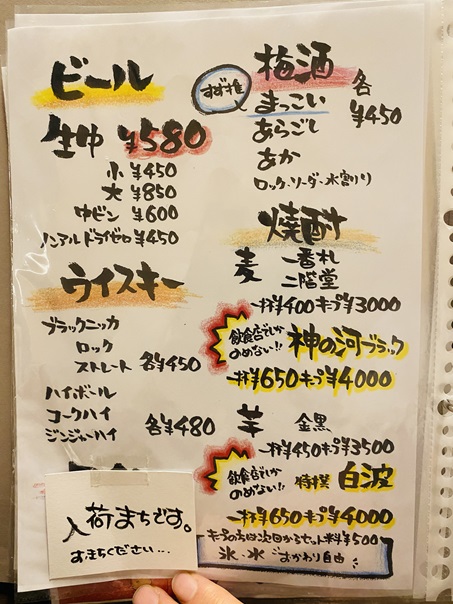 ビール
生中 ¥580
小 ¥450
大 ¥850
中ビン ¥600
ノンアルドライゼロ ¥450
ウイスキー
ブラックニッカ
ロック
ストレート 各¥450
ハイボール
コークハイ
ジンジャーハイ 各¥480
入荷まちです。
すず推
梅酒 各¥450
まっこい
あらごし
あか
ロック、ソーダ、水割り
焼酎
麦 一番札
二階堂
一杯¥400 キープ¥3000
飲食店でしか
のめない!! 神の河ブラック
一杯¥650 キープ¥4000
芋 金黒
一杯¥450 キープ¥3500
飲食店でしか
のめない!! 特撰 白波
一杯¥650 キープ¥4000
キープの方は次回からセット料¥500
氷・水 おかわり自由